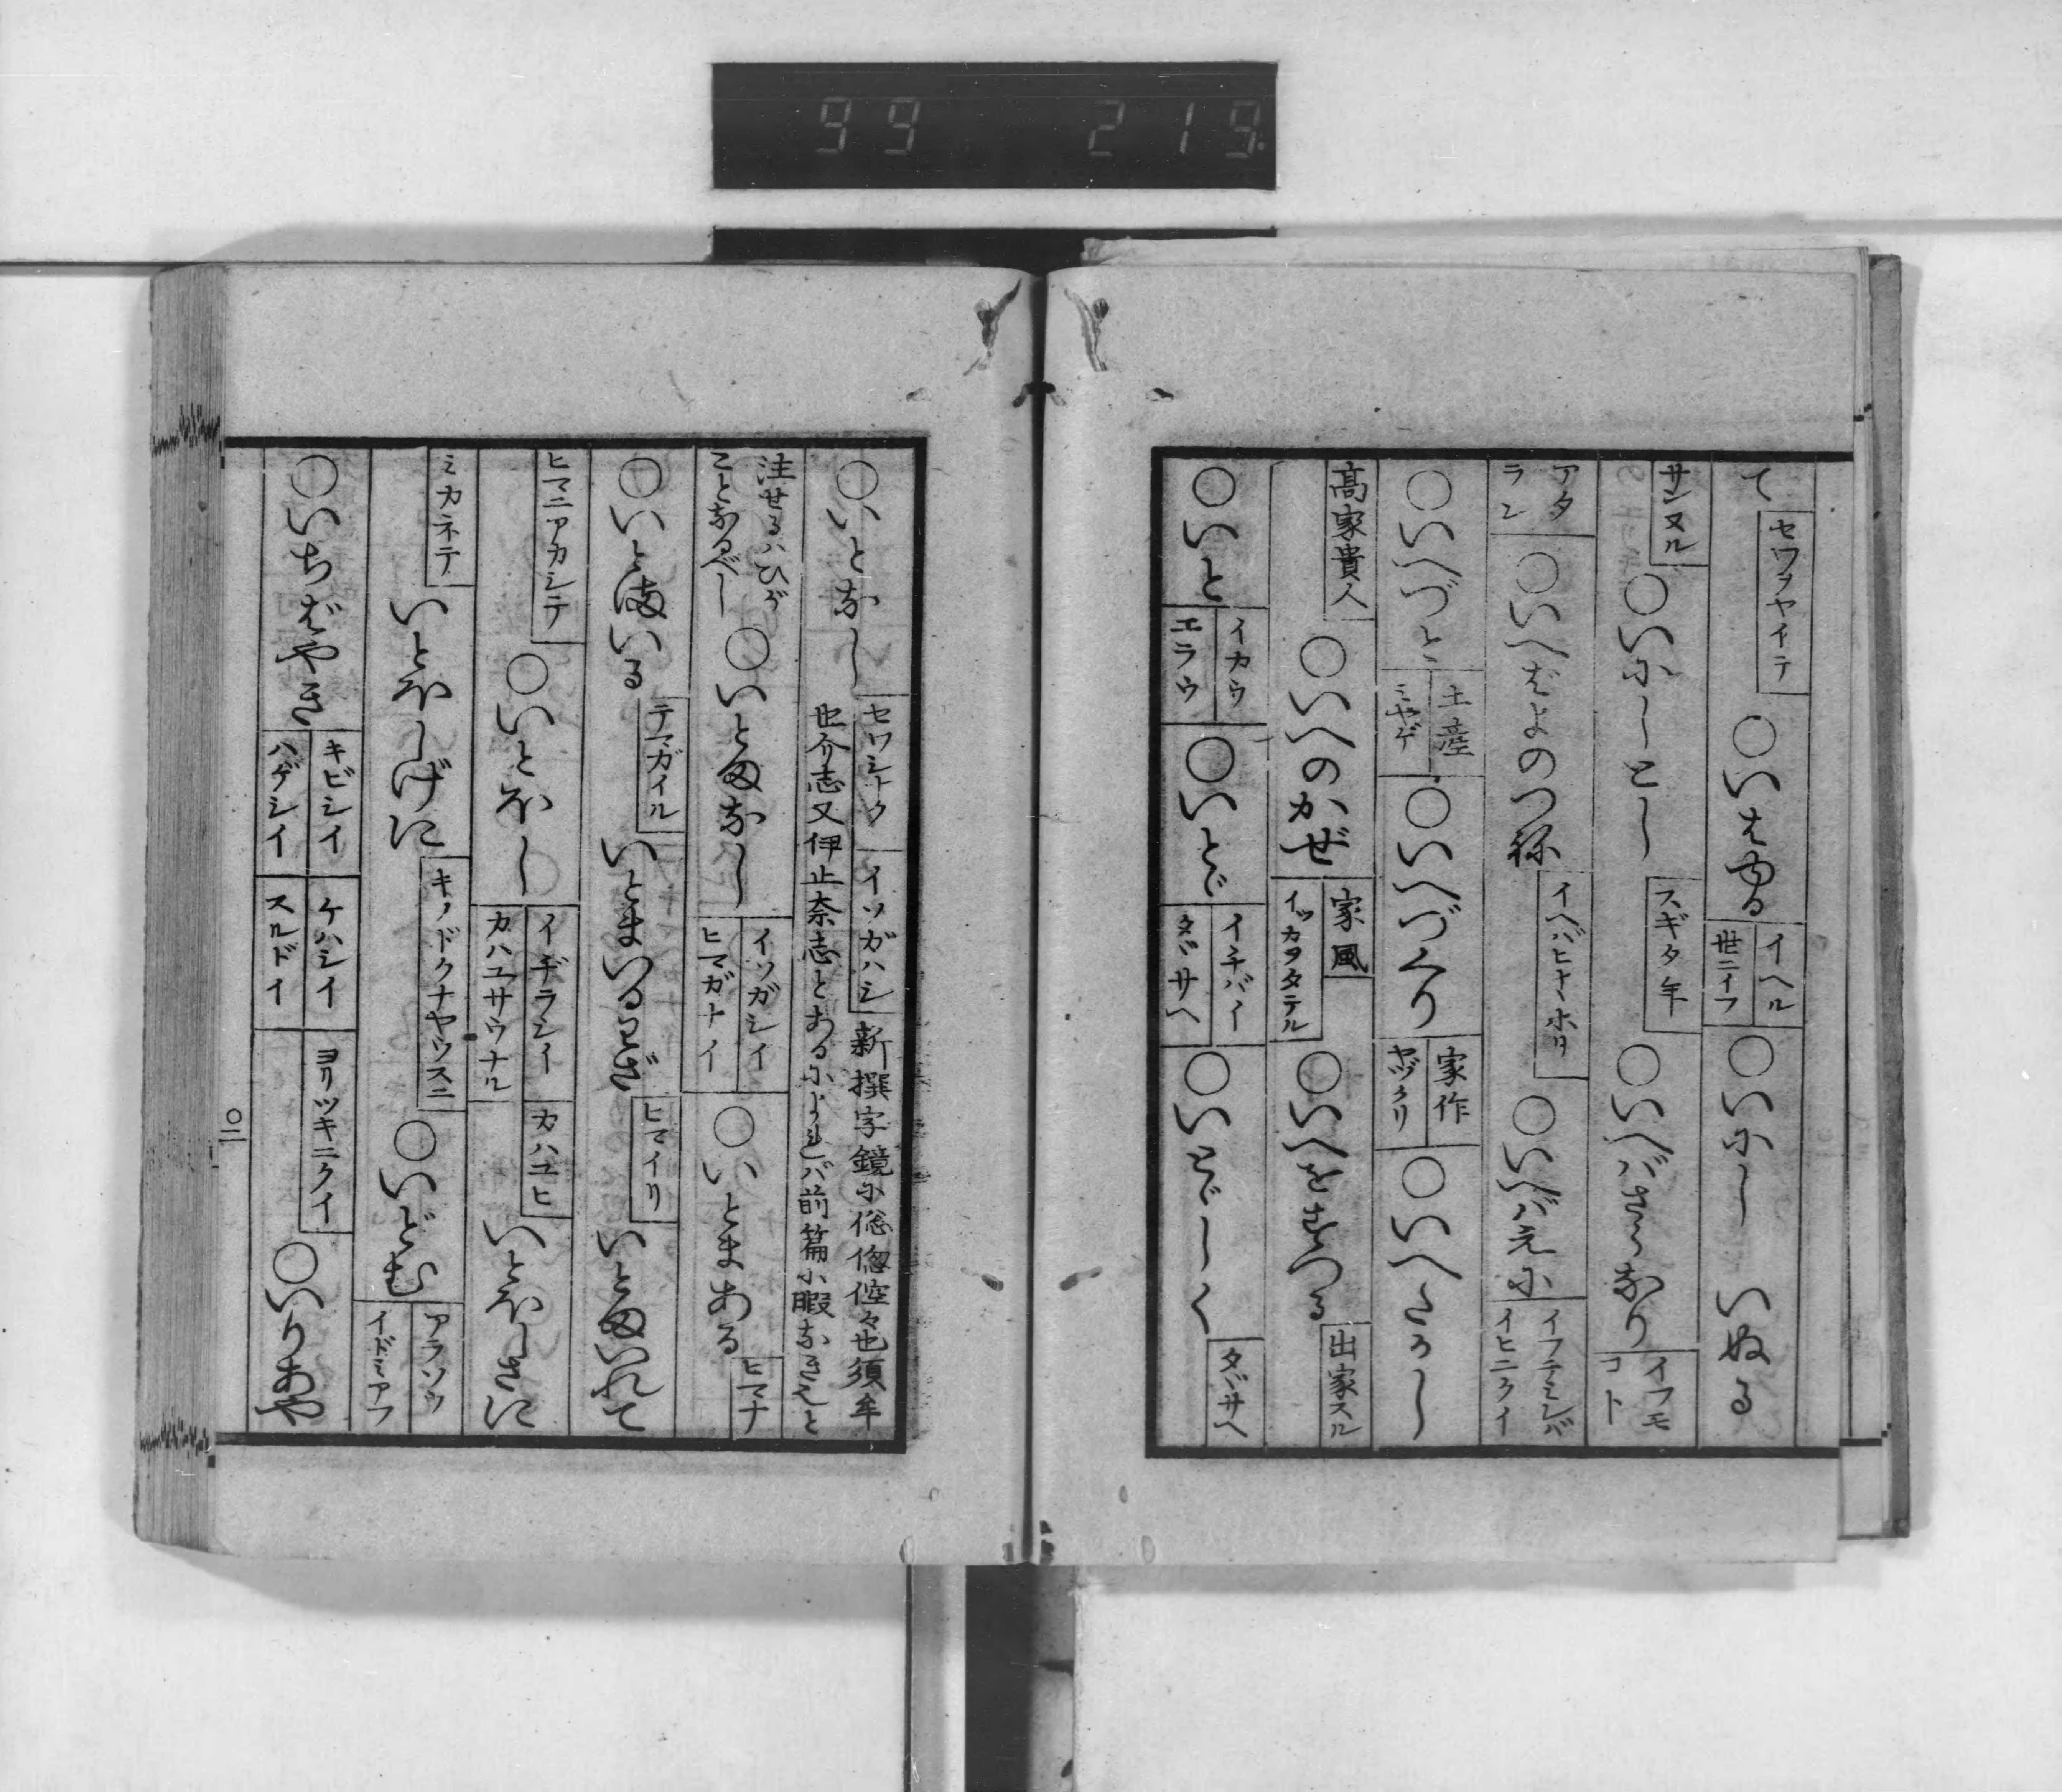 99 219
て セワヲヤイテ ○いはゆる イヘル 世ニイフ ○いにし いぬる
サンヌル ○いにしとし スギタ年 ○いへバさらなり イフモコト
アタラシ ○いへばよのつね イヘバヒトトホリ ○いへバえに イフテミレバ イヒニクイ
○いへづと 土産 ミヤゲ ○いへづくり 家作 ヤヅクリ ○いへたかし
高家貴人 ○いへのかぜ 家風 イッカヲタテル ○いへをすつる 出家スル
○いと イカウ エラウ ○いとど イチバイ タヾサヘ ○いとどしく タヾサヘ
○いとなし セワシナウ イソガハシ 新撰字鏡に偬偬倥々也須牟
也介志又伊止奈志とあるによれバ前篇に暇なきこと
注せるハひが
ことなるべし ○いとまなし イソガシイ ヒマガナイ ○いとまある ヒマナ
○いとまいる テマガイル いとまいるわざ ヒマイリ いとまいれて
ヒマニアカシテ ○いとほし イヂラシイ カハユサウナル カハユヒ いとほしさに
ミカネテ いとほしげに キノドクナヤウスニ ○いどむ アラソウ イドミアフ
○いちばやき キビシイ ハゲシイ ケハシイ スルドイ ヨリツキニクイ ○いりあや
〇二